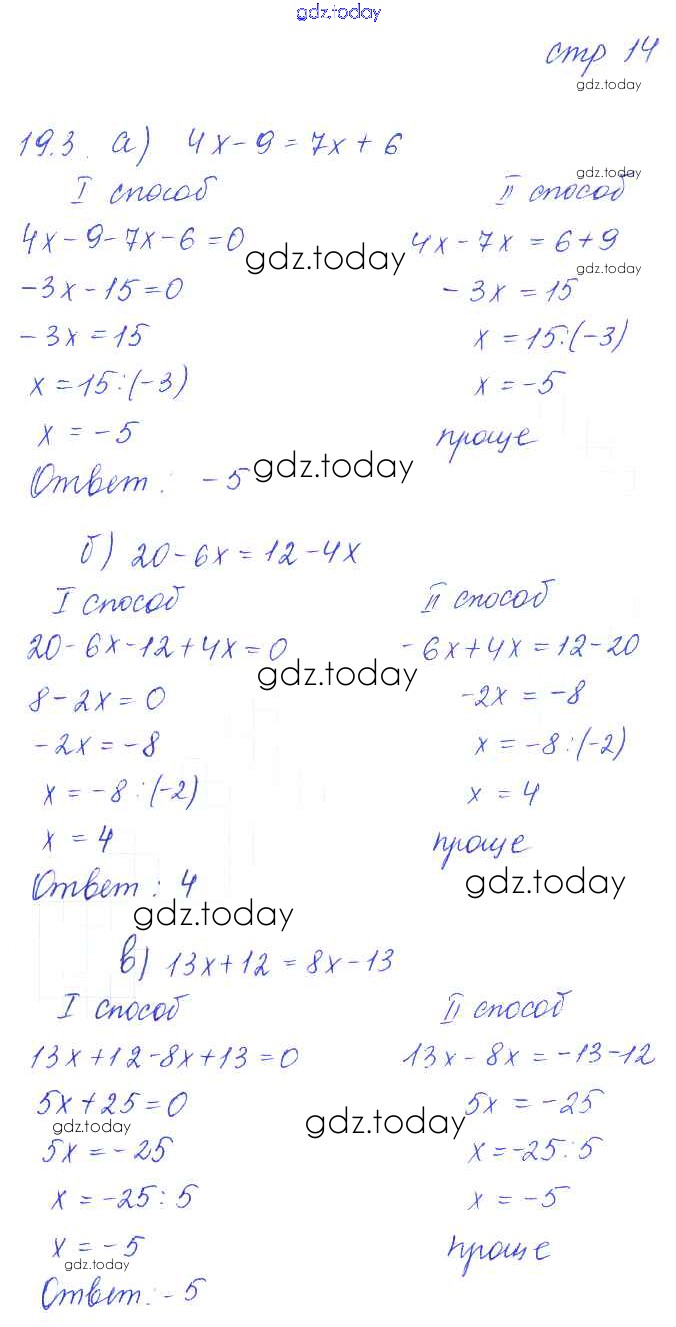 gdz.today
стр 14
gdz.today
19.3. а) 4x-9=7x+6
gdz.today
I способ
II способ
4x-9-7x-6=0
gdz.today
4x-7x=6+9
gdz.today
-3x-15=0
-3x=15
-3x=15
x=15:(-3)
x=15:(-3)
x=-5
x=-5
проще
Ответ: -5
gdz.today
б) 20-6x=12-4x
I способ
II способ
20-6x-12+4x=0
gdz.today
-6x+4x=12-20
8-2x=0
-2x=-8
-2x=-8
x=-8:(-2)
x=-8:(-2)
x=4
x=4
проще
Ответ: 4
gdz.today
gdz.today
в) 13x+12=8x-13
I способ
II способ
13x+12-8x+13=0
13x-8x=-13-12
5x+25=0
gdz.today
gdz.today
5x=-25
5x=-25
x=-25:5
x=-25:5
x=-5
x=-5
gdz.today
проще
Ответ: -5